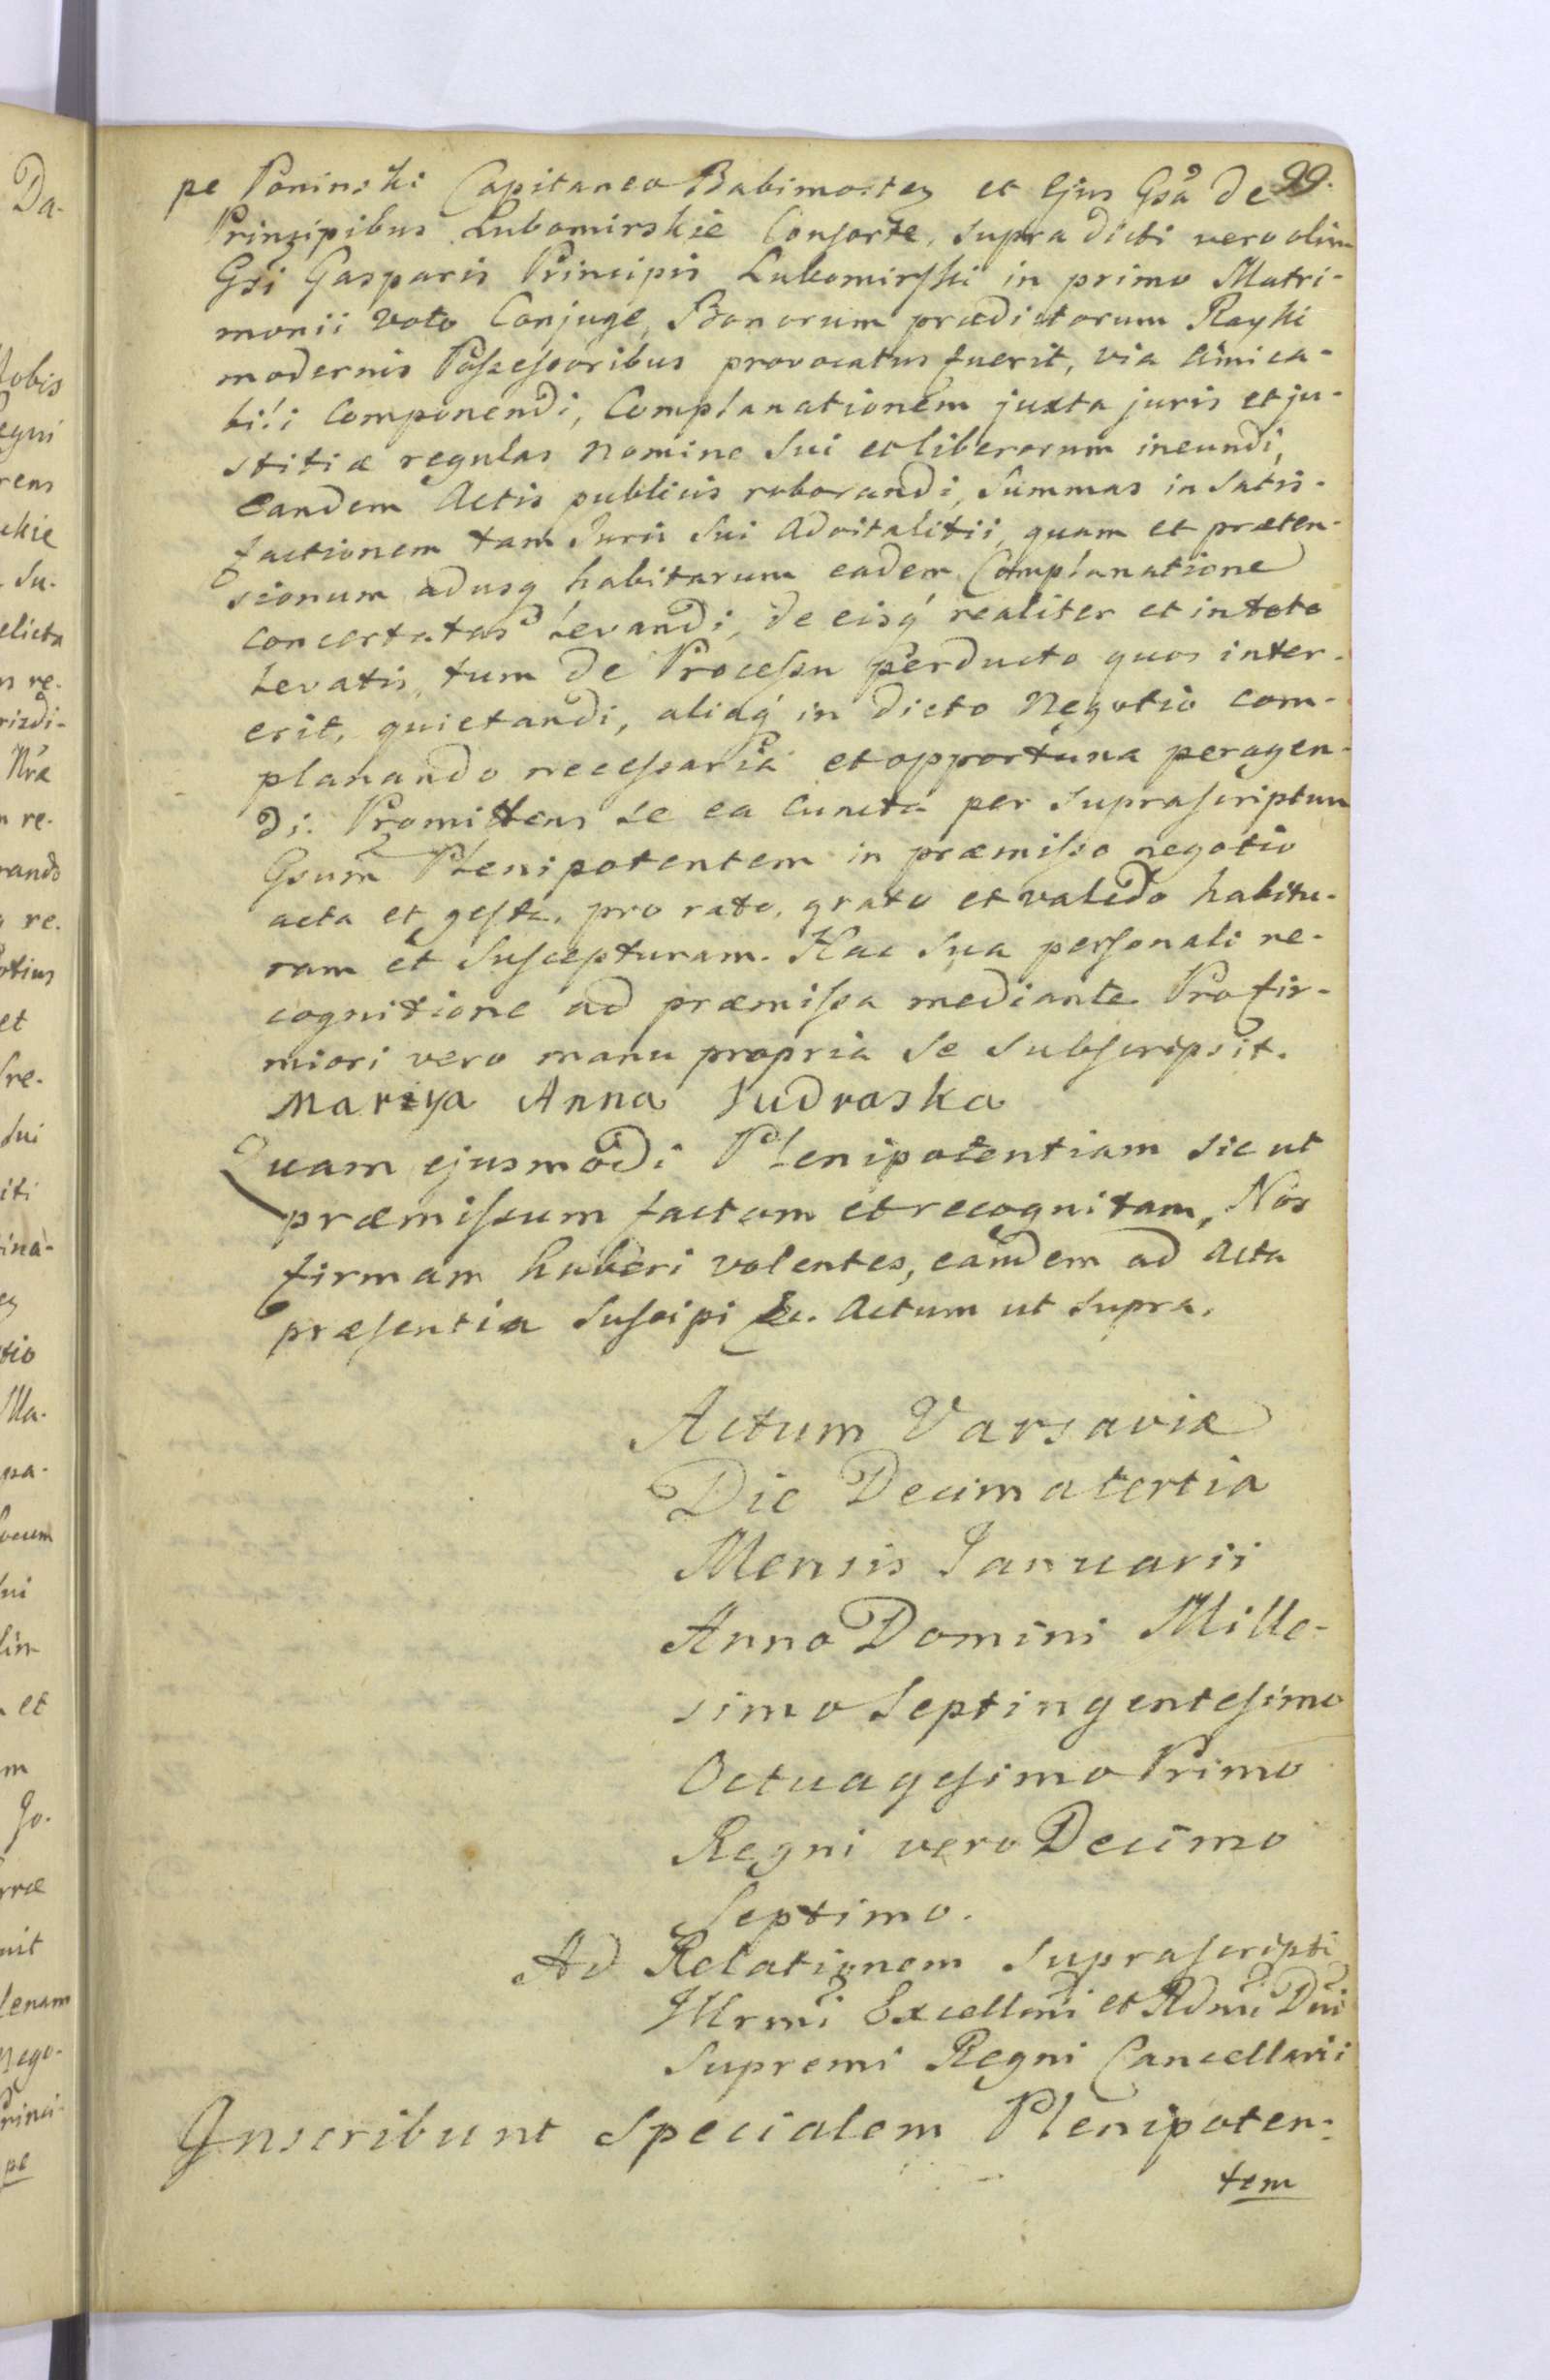 99.
pe Poninski Capitaneo Babimosten et Ejus Gsa de
Prinzipibus Lubomirskie Consorte, supra dicti vero olim
Gsi Gasparis Principis Lubomirski in primo Matri-
monii voto Conjuge, Bonorum prædictorum Rayki
modernis Possessoribus provocatus fuerit, via Amica-
bili componendi, Complanationem juxta juris et ju-
stitiæ regulas nomine sui et liberorum ineundi,
Eandem Actis publicis roborandi, Summas in Satis-
factionem tam Juris sui Advitalitii, quam et præten-
sionum adusq habitarum eadem Complanatione
concertatas Levandi, de eisq realiter et in toto
Levatis, tum de Processu perducto quos inter-
erit, quietandi, aliaq in dicto Negotio com-
planando necessaria et opportuna peragen-
di. Promittens se ea cuncta per suprascriptum
Gsum Plenipotentem in præmisso negotio
acta et gesta, pro rato, grato et valido habitu-
ram et suscepturam. Hac sua personali re-
cognitione ad præmissa mediante. Pro fir-
miori vero manu propria se subscripsit.
Mariya Anna Sudraska
Quam ejusmodi Plenipotentiam sic ut
præmissum factam et recognitam, Nos
firmam haberi volentes, eandem ad Acta
præsentia suscipi &c. Actum ut supra.
Actum Varsaviæ
Die Decima tertia
Mensis Januarii
Anno Domini Mille-
simo Septingentesimo
Octuagesimo Primo
Regni vero Decimo
Septimo.
Ad Relationem suprascripti
Illrmi Excellmi et Rdmi Dni
Supremi Regni Cancellarii
Inscribunt Specialem Plenipoten-
tem